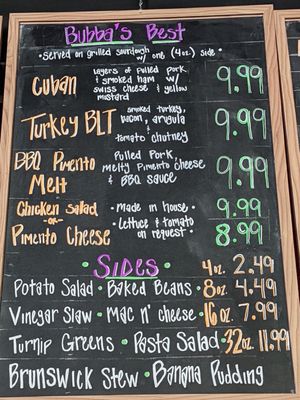 Bubba's Best
• Served on grilled sourdough w/ one (4oz.) side •
Cuban
layers of pulled pork
& smoked ham w/
swiss cheese & yellow
mustard
9.99
Turkey BLT
smoked turkey,
bacon, arugula
&
tomato chutney
9.99
BBQ Pimento
Melt
Pulled Pork,
melty pimento cheese
& BBQ sauce
9.99
Chicken Salad
-or-
Pimento Cheese
• made in house •
• Lettuce & tomato
on request •
9.99
8.99
• Sides •
4oz. 2.49
Potato Salad • Baked Beans • 8oz 4.49
Vinegar Slaw • Mac n' cheese • 16oz 7.99
Turnip Greens • Pasta Salad • 32oz. 11.99
Brunswick Stew • Banana Pudding